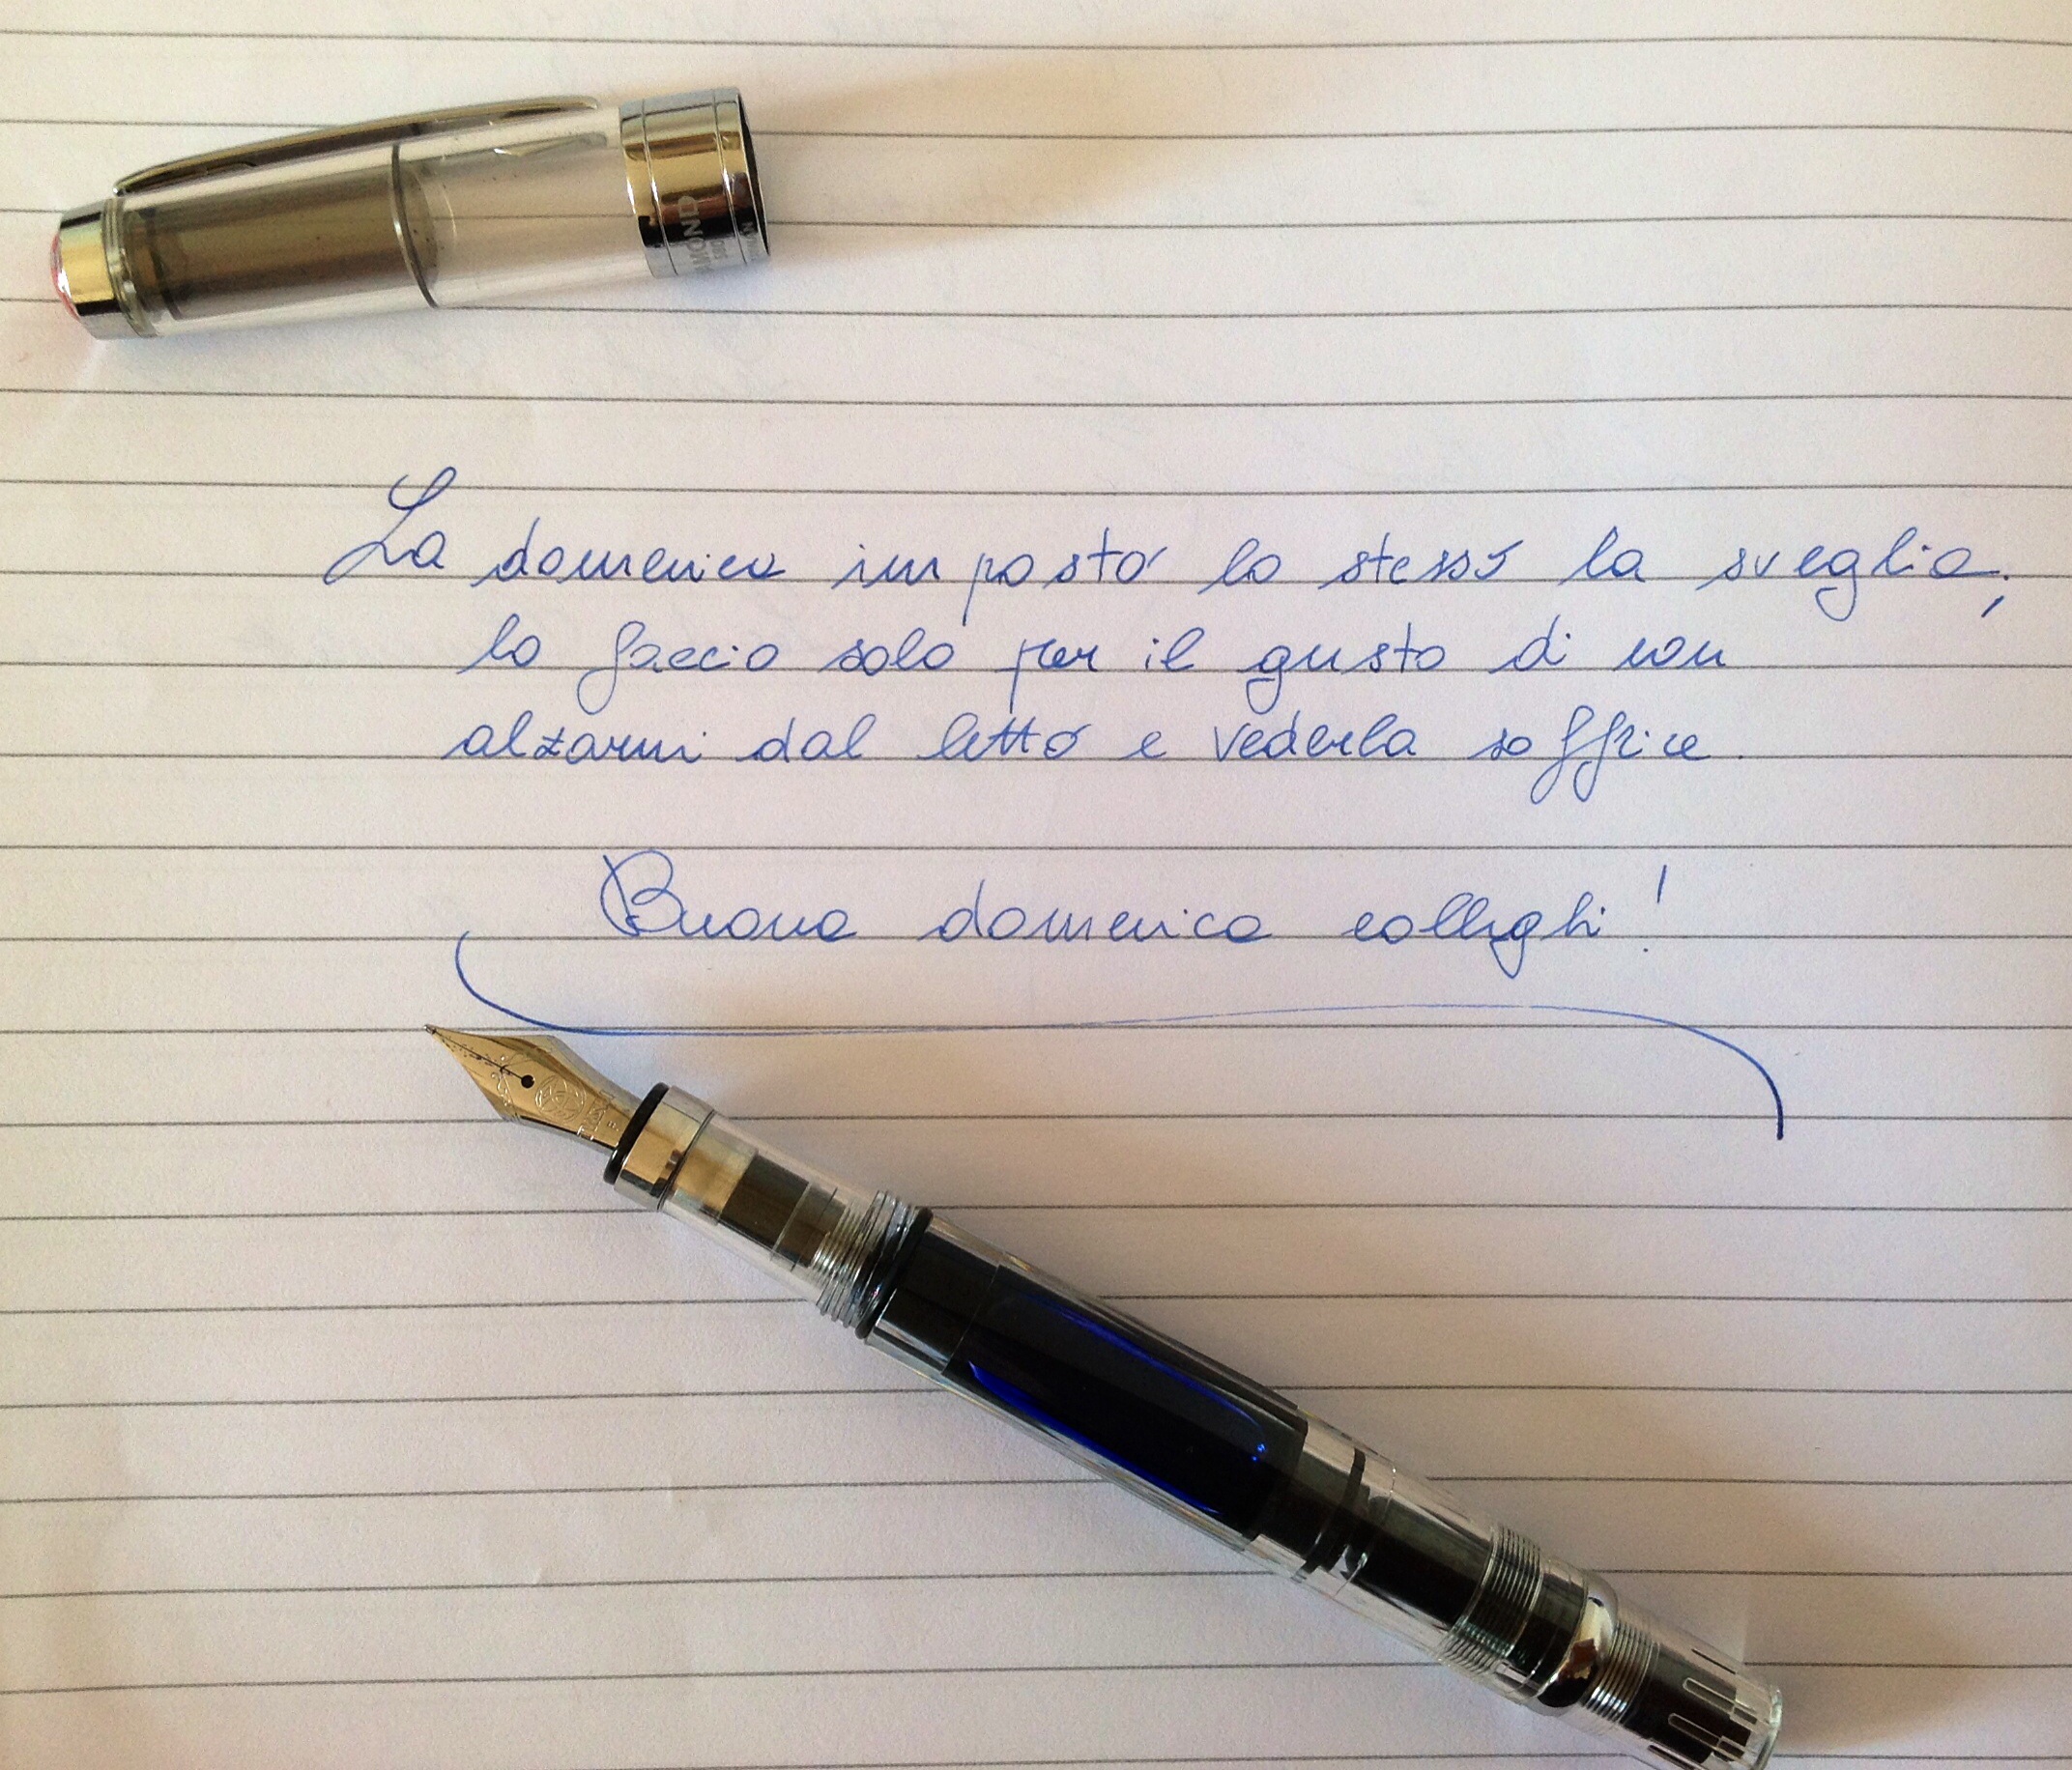 MOND
La domenica imposto lo stesso la sveglia;
lo faccio solo per il gusto di non
alzarmi dal letto e vederla soffrice.
Buona domenica colleghi!